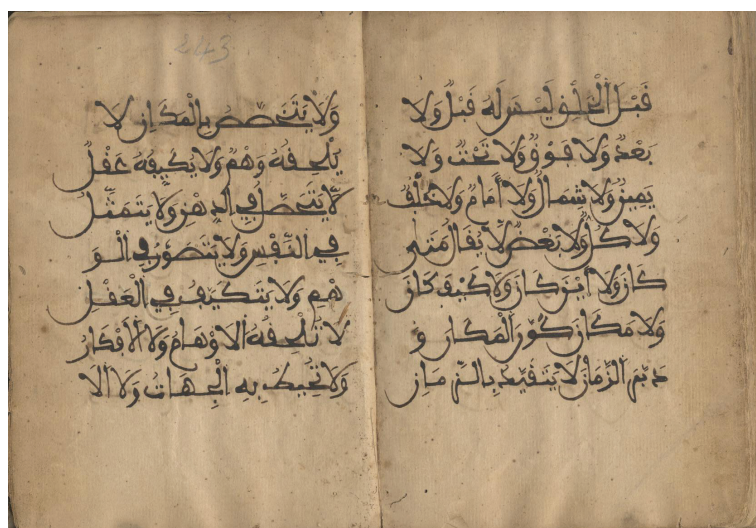 قَبْلَ الْخَلْقِ لَيْسَ لَهُ قَبْلٌ وَلَا
بَعْدٌ وَلَا فَوْقٌ وَلَا تَحْتٌ وَلَا
يَمِينٌ وَلَا شِمَالٌ وَلَا أَمَامٌ وَلَا خَلْفٌ
وَلَا كُلٌّ وَلَا بَعْضٌ لَا يُقَالُ مَتَى
كَانَ وَلَا أَيْنَ كَانَ وَلَا كَيْفَ كَانَ
وَلَا مَكَانَ كَوَّنَ الْمَكَانَ وَ
دَبَّرَ الزَّمَانَ لَا يَتَقَيَّدُ بِالزَّمَانِ
وَلَا يَتَخَصَّصُ بِالْمَكَانِ لَا
يَلْحَقُهُ وَهْمٌ وَلَا يُكَيِّفُهُ عَقْلٌ
لَا يَتَحَصَّلُ فِي الذِّهْنِ وَلَا يَتَمَثَّلُ
فِي النَّفْسِ وَلَا يَتَصَوَّرُ فِي الْوَ
هْمِ وَلَا يَتَكَيَّفُ فِي الْعَقْلِ
لَا تَلْحَقُهُ الْأَوْهَامُ وَلَا الْأَفْكَارُ
وَلَا تُحِيطُ بِهِ الْجِهَاتُ وَلَا الْأَ